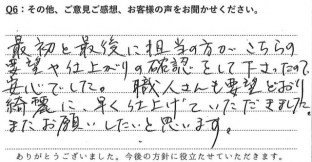 Q6：その他、ご意見ご感想、お客様の声をお聞かせください。
最初と最後に担当の方が こちらの
要望や仕上がりの確認をして下さったので
安心でした。 職人さんも要望どおり
綺麗に、早く仕上げていただきました。
またお願いしたいと思います。
ありがとうございました。今後の方針に役立たせていただきます。